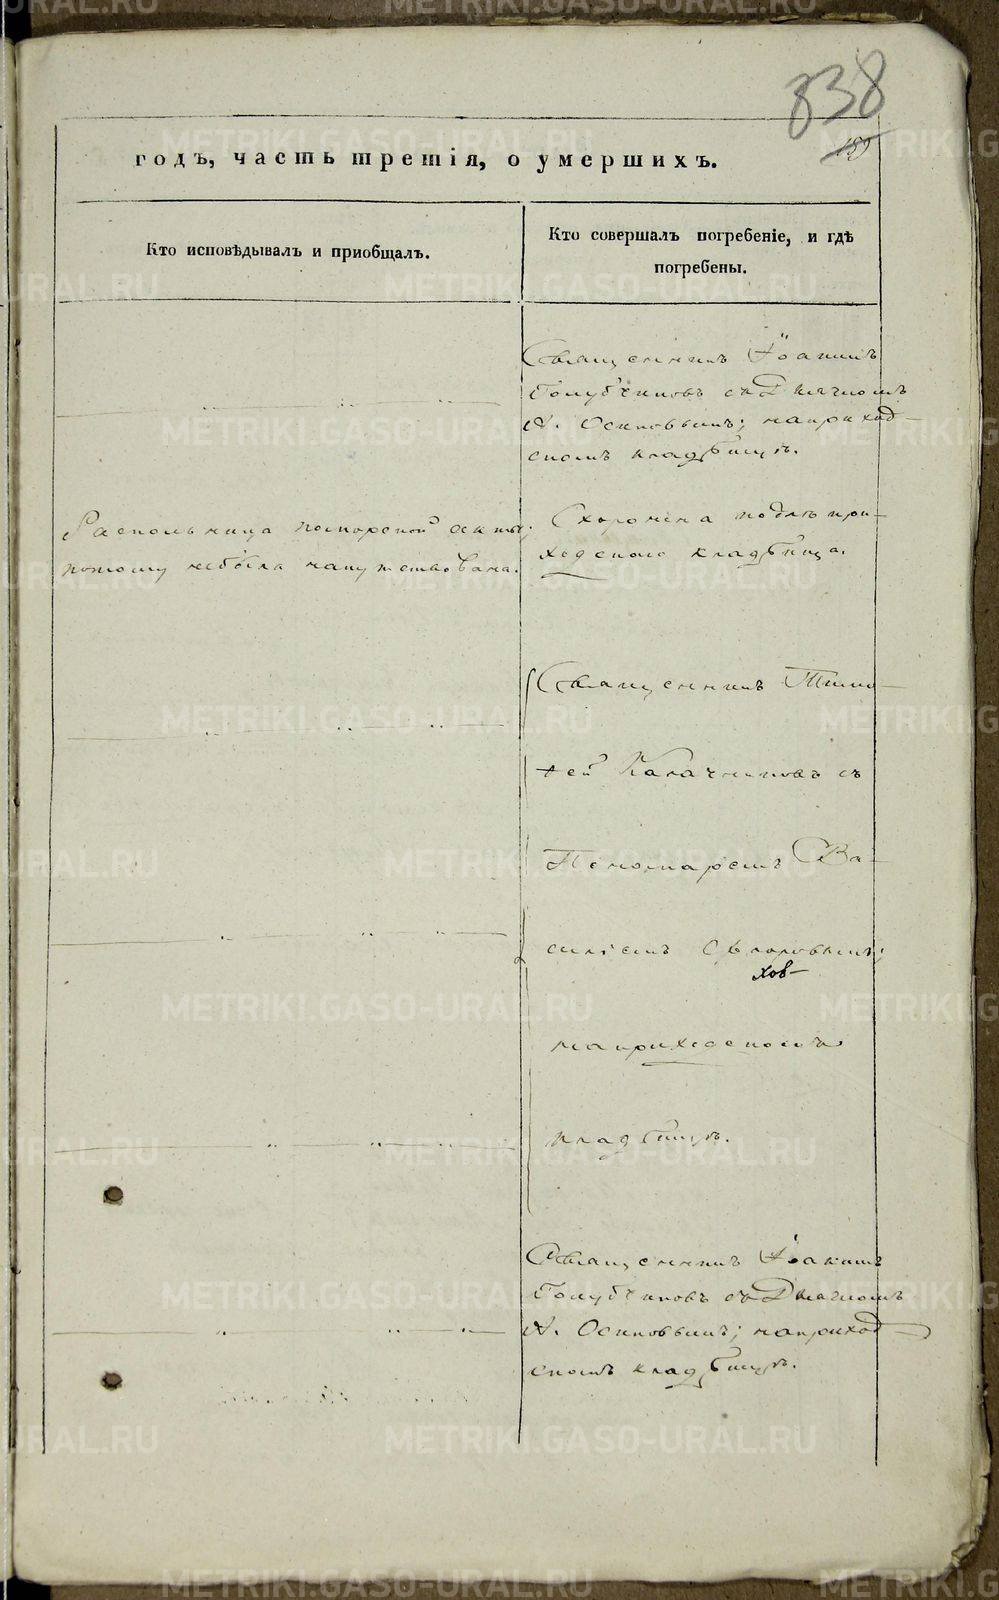 838
189
годъ, часть третія, о умершихъ.
Кто исповѣдывалъ и пріобщалъ.
Кто совершалъ погребеніе, и гдѣ
погребены.
Священникъ Іоакимъ
Голубчиковъ съ Дьячкомъ
А. Осиповымъ; на приход-
скомъ кладбищѣ.
Раскольница поморской секты;
потому не была напутствована.
Схоронена подлѣ при-
ходскаго кладбища.
Священникъ Тимо-
фей Калачниковъ съ
Пономаремъ Ва-
силіемъ
хов-
на приходскомъ
кладбищѣ.
Священникъ Іоакимъ
Голубчиковъ съ Дьячкомъ
А. Осиповымъ; на приход-
скомъ кладбищѣ.
METRIKI.GASO-URAL.RU